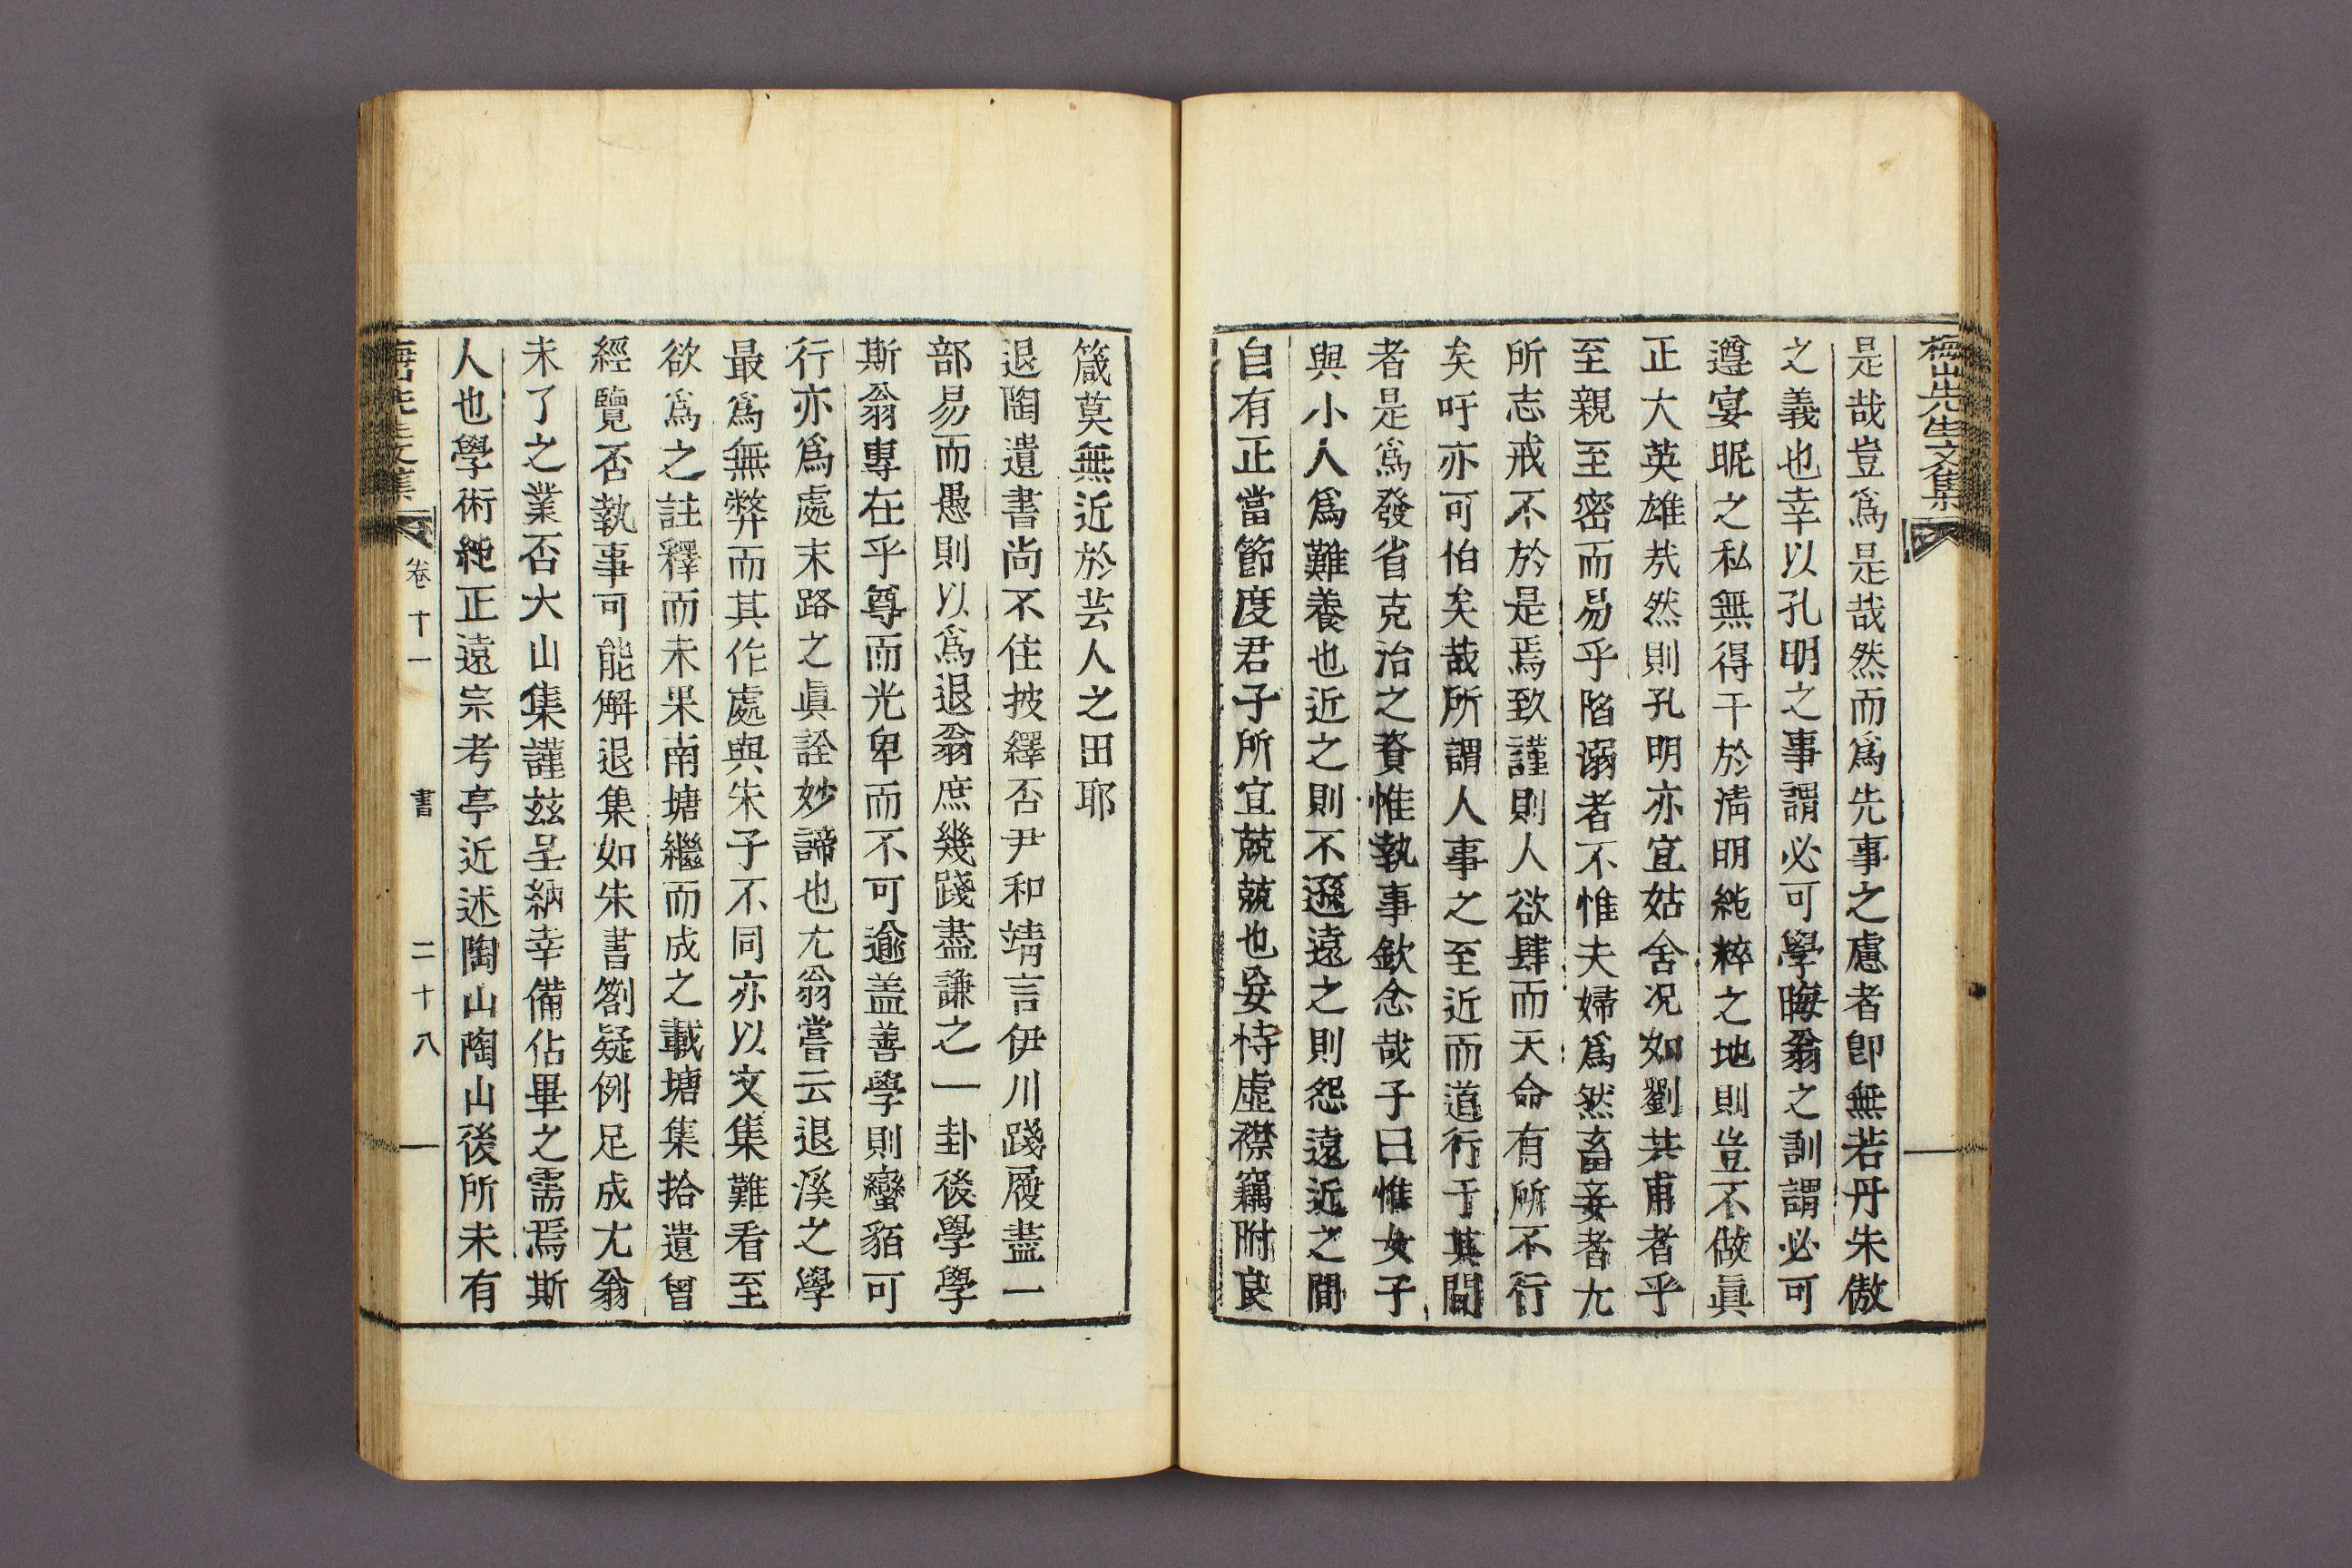 梅山先生文集
是哉豈爲是哉然而爲先事之慮者卽無若丹朱傲
之義也幸以孔明之事謂必可學晦翁之訓謂必可
遵宴昵之私無得干於淸明純粹之地則豈不做眞
正大英雄㢤然則孔明亦宜姑舍况如劉共甫者乎
至親至密而易乎陷溺者不惟夫婦爲然畜妾者尤
所志戒不於是焉致謹則人欲肆而天命有所不行
矣吁亦可怕矣哉所謂人事之至近而道行于其間
者是爲發省克治之資惟執事欽念哉子曰惟女子
與小人爲難養也近之則不遜遠之則怨遠近之間
自有正當節度君子所宜兢兢也妄恃虛襟竊附良
箴莫無近於芸人之田耶
退陶遺書尙不住披繹否尹和靖言伊川踐履盡一
部易而愚則以爲退翁庶幾踐盡謙之一卦後學學
斯翁專在乎尊而光卑而不可逾盖善學則蠻貊可
行亦爲處末路之眞詮妙諦也尤翁嘗云退溪之學
最爲無弊而其作處與朱子不同亦以文集難看至
欲爲之註釋而未果南塘繼而成之載塘集拾遺曾
經覽否執事可能解退集如朱書箚疑例足成尤翁
未了之業否大山集謹玆呈納幸備佔畢之需焉斯
人也學術純正遠宗考亭近述陶山陶山後所未有
梅山先生文集 卷十一 書 二十八